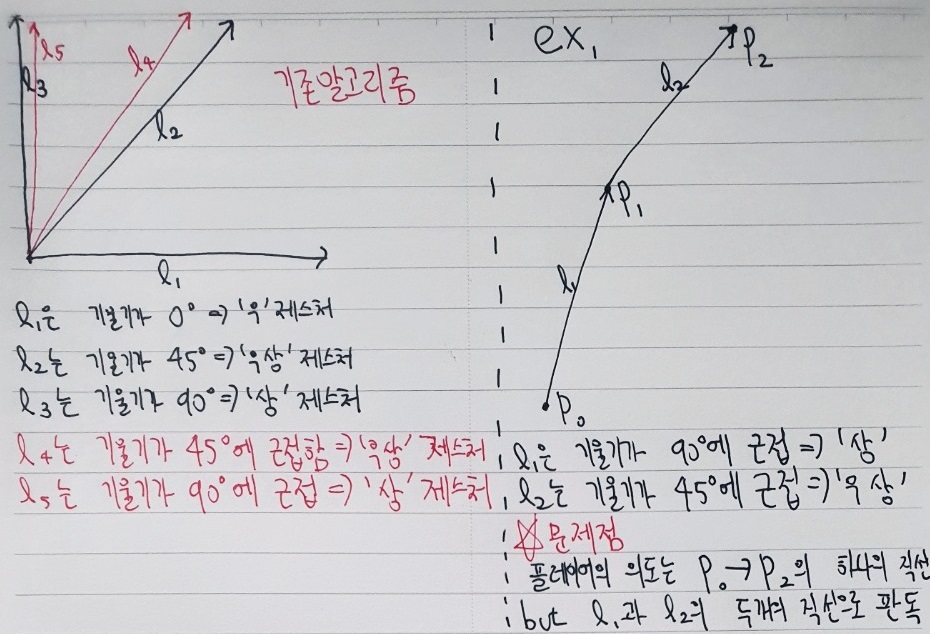 l5
l3
l4
l2
기존알고리즘
l1
l1은 기울기가 0° => '우' 제스처
l2는 기울기가 45° => '우상' 제스처
l3는 기울기가 90° => '상' 제스처
l4는 기울기가 45°에 근접함 => '우상' 제스처
l5는 기울기가 90°에 근접 => '상' 제스처
ex1
P2
l2
P1
l1
P0
l1은 기울기가 90°에 근접 => '상'
l2는 기울기가 45°에 근접 => '우상'
☆문제점
플레이어의 의도는 P0→P2의 하나의 직선
but l1과 l2의 두개의 직선으로 판독